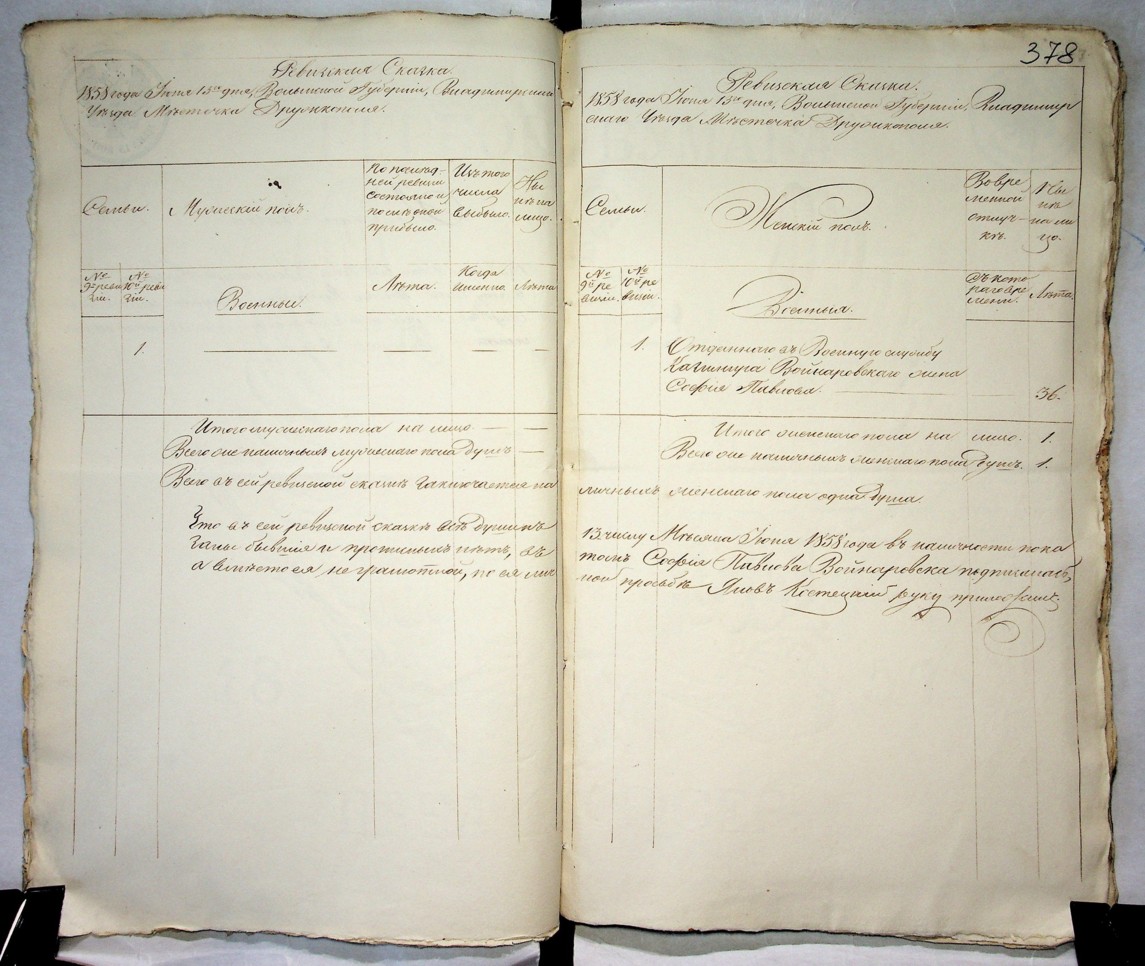 Ревизская Сказка.
1858 года Іюня 15го дня, Волынской Губерніи, Владимирскаго
Уѣзда Мѣстечка Дружкополя.
Семьи.
Мужескій полъ.
По послѣд-
ней ревизіи
состояло и
послѣ оной
прибыло.
Изъ того
числа
выбыло.
Ны
нѣ на
лицо.
№ 9й реви
зіи.
№ 10й реви
зіи.
Военныи.
Лѣта.
Когда
именно.
Лѣта
1.
Итого мужескаго пола на лицо
Всего же наличныхъ мужескаго пола душъ
Всего въ сей ревизской сказкѣ заключается на
Что въ сей ревизской сказкѣ всѣ души къ
заны бывшія и прописныхъ нѣтъ, въ
а вмѣсто ея неграмотной, по ея лич
378
Ревизская Сказка.
1858 года Іюня 15го дня, Волынской Губерніи, Владимир
скаго Уѣзда Мѣстечка Дружкополя.
Семьи.
Женскій полъ.
Во вре
менной
отлуч-
кѣ.
Ны
нѣ
на ли
цо.
№ 9й ре
визіи.
№ 10й ре
визіи.
Военныя.
Съ кото
раго вре
мени.
Лѣта
1.
Отданнаго въ Военную службу
Казимира Войнаровскаго жена
Софія Павлова.
36.
Итого женскаго пола на лицо. 1.
Всего же наличныхъ женскаго пола душъ. 1.
личныхъ женскаго пола одна душа
13 числу Мѣсяца Іюня 1858 года въ наличности пока
томъ Софія Павлова Войнаровска подписалась,
ной просьбѣ Яковъ Костецкій руку приложилъ